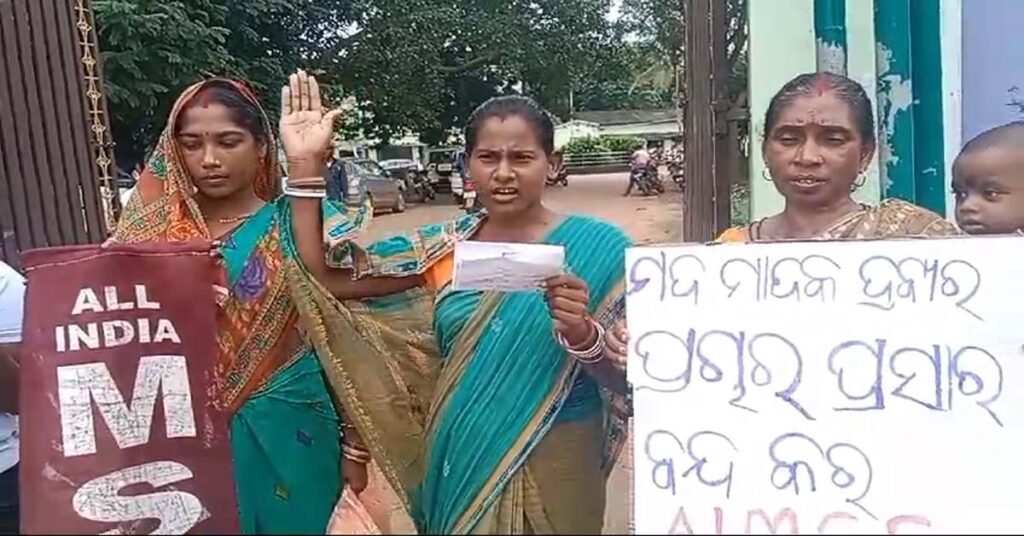 ALL
INDIA
M
S
ମଦ ମାଦକ ଦ୍ରବ୍ୟର
ପ୍ରଚାର ପ୍ରସାର
ବନ୍ଦ କର
AIMSS